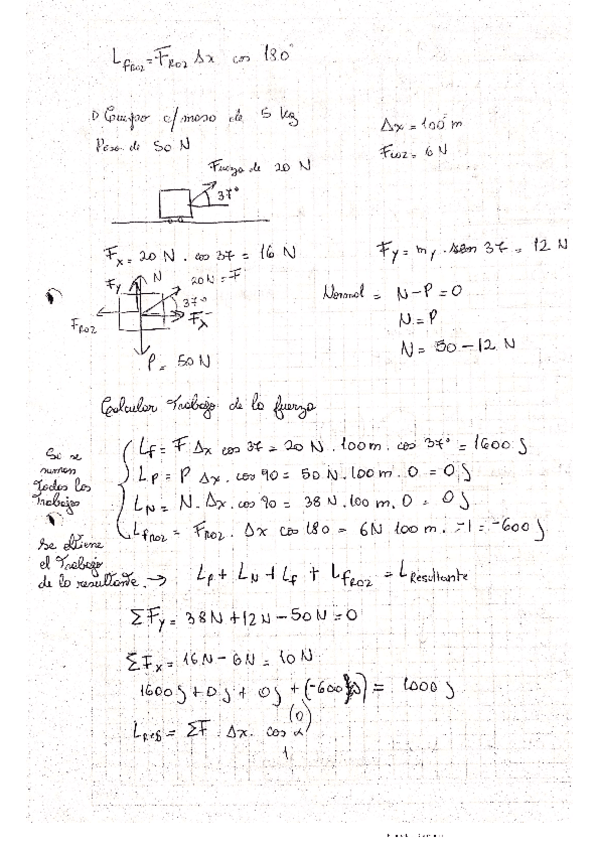 L fROZ = FROZ Δx cos 180°
1) Cuerpo c/ masa de 5 kg
Peso de 50 N
Δx = 100 m
Froz = 6 N
Fuerza de 20 N
37°
Fx = 20 N . cos 37 = 16 N
Fy = . sen 37 = 12 N
Fy N 20 N = F
37°
FROZ Fx
P = 50 N
Normal = N - P = 0
N = P
N = 50 - 12 N
Calcular Trabajo de la fuerza
Si se suman todos los trabajos
Lf = F Δx cos 37 = 20 N . 100 m . cos 37° = 1600 J
LP = P Δx . cos 90 = 50 N . 100 m . 0 = 0 J
LN = N . Δx . cos 90 = 38 N . 100 m . 0 = 0 J
LfROZ = FROZ . Δx cos 180 = 6N 100 m . -1 = -600 J
se obtiene el Trabajo de la resultante. →
LP + LN + Lf + LfROZ = LResultante
ΣFy = 38N + 12N - 50N = 0
ΣFx = 16N - 6N = 10N
1600 J + 0 J + 0 J + (-600 J) = 1000 J
(0)
LRes = ΣF . Δx . cos α
1